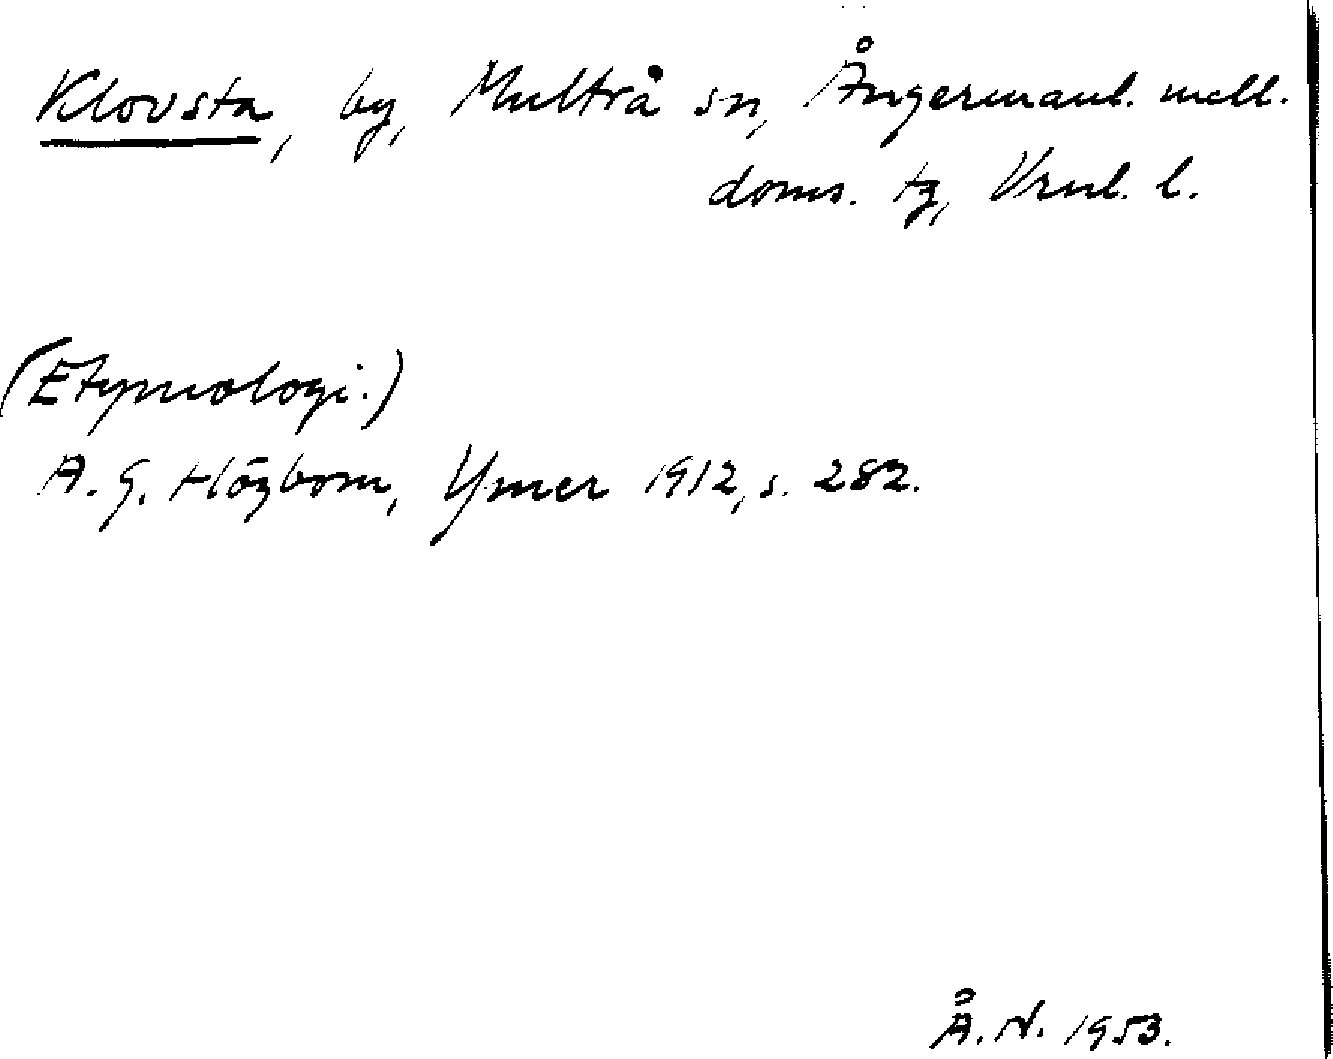 Klovsta, by, Multrå sn, Ångermanl. mell.
doms. tg, Vrnl. l.
(Etymologi.)
A. G. Högbom, Ymer 1912, s. 282.
Å. N. 1953.